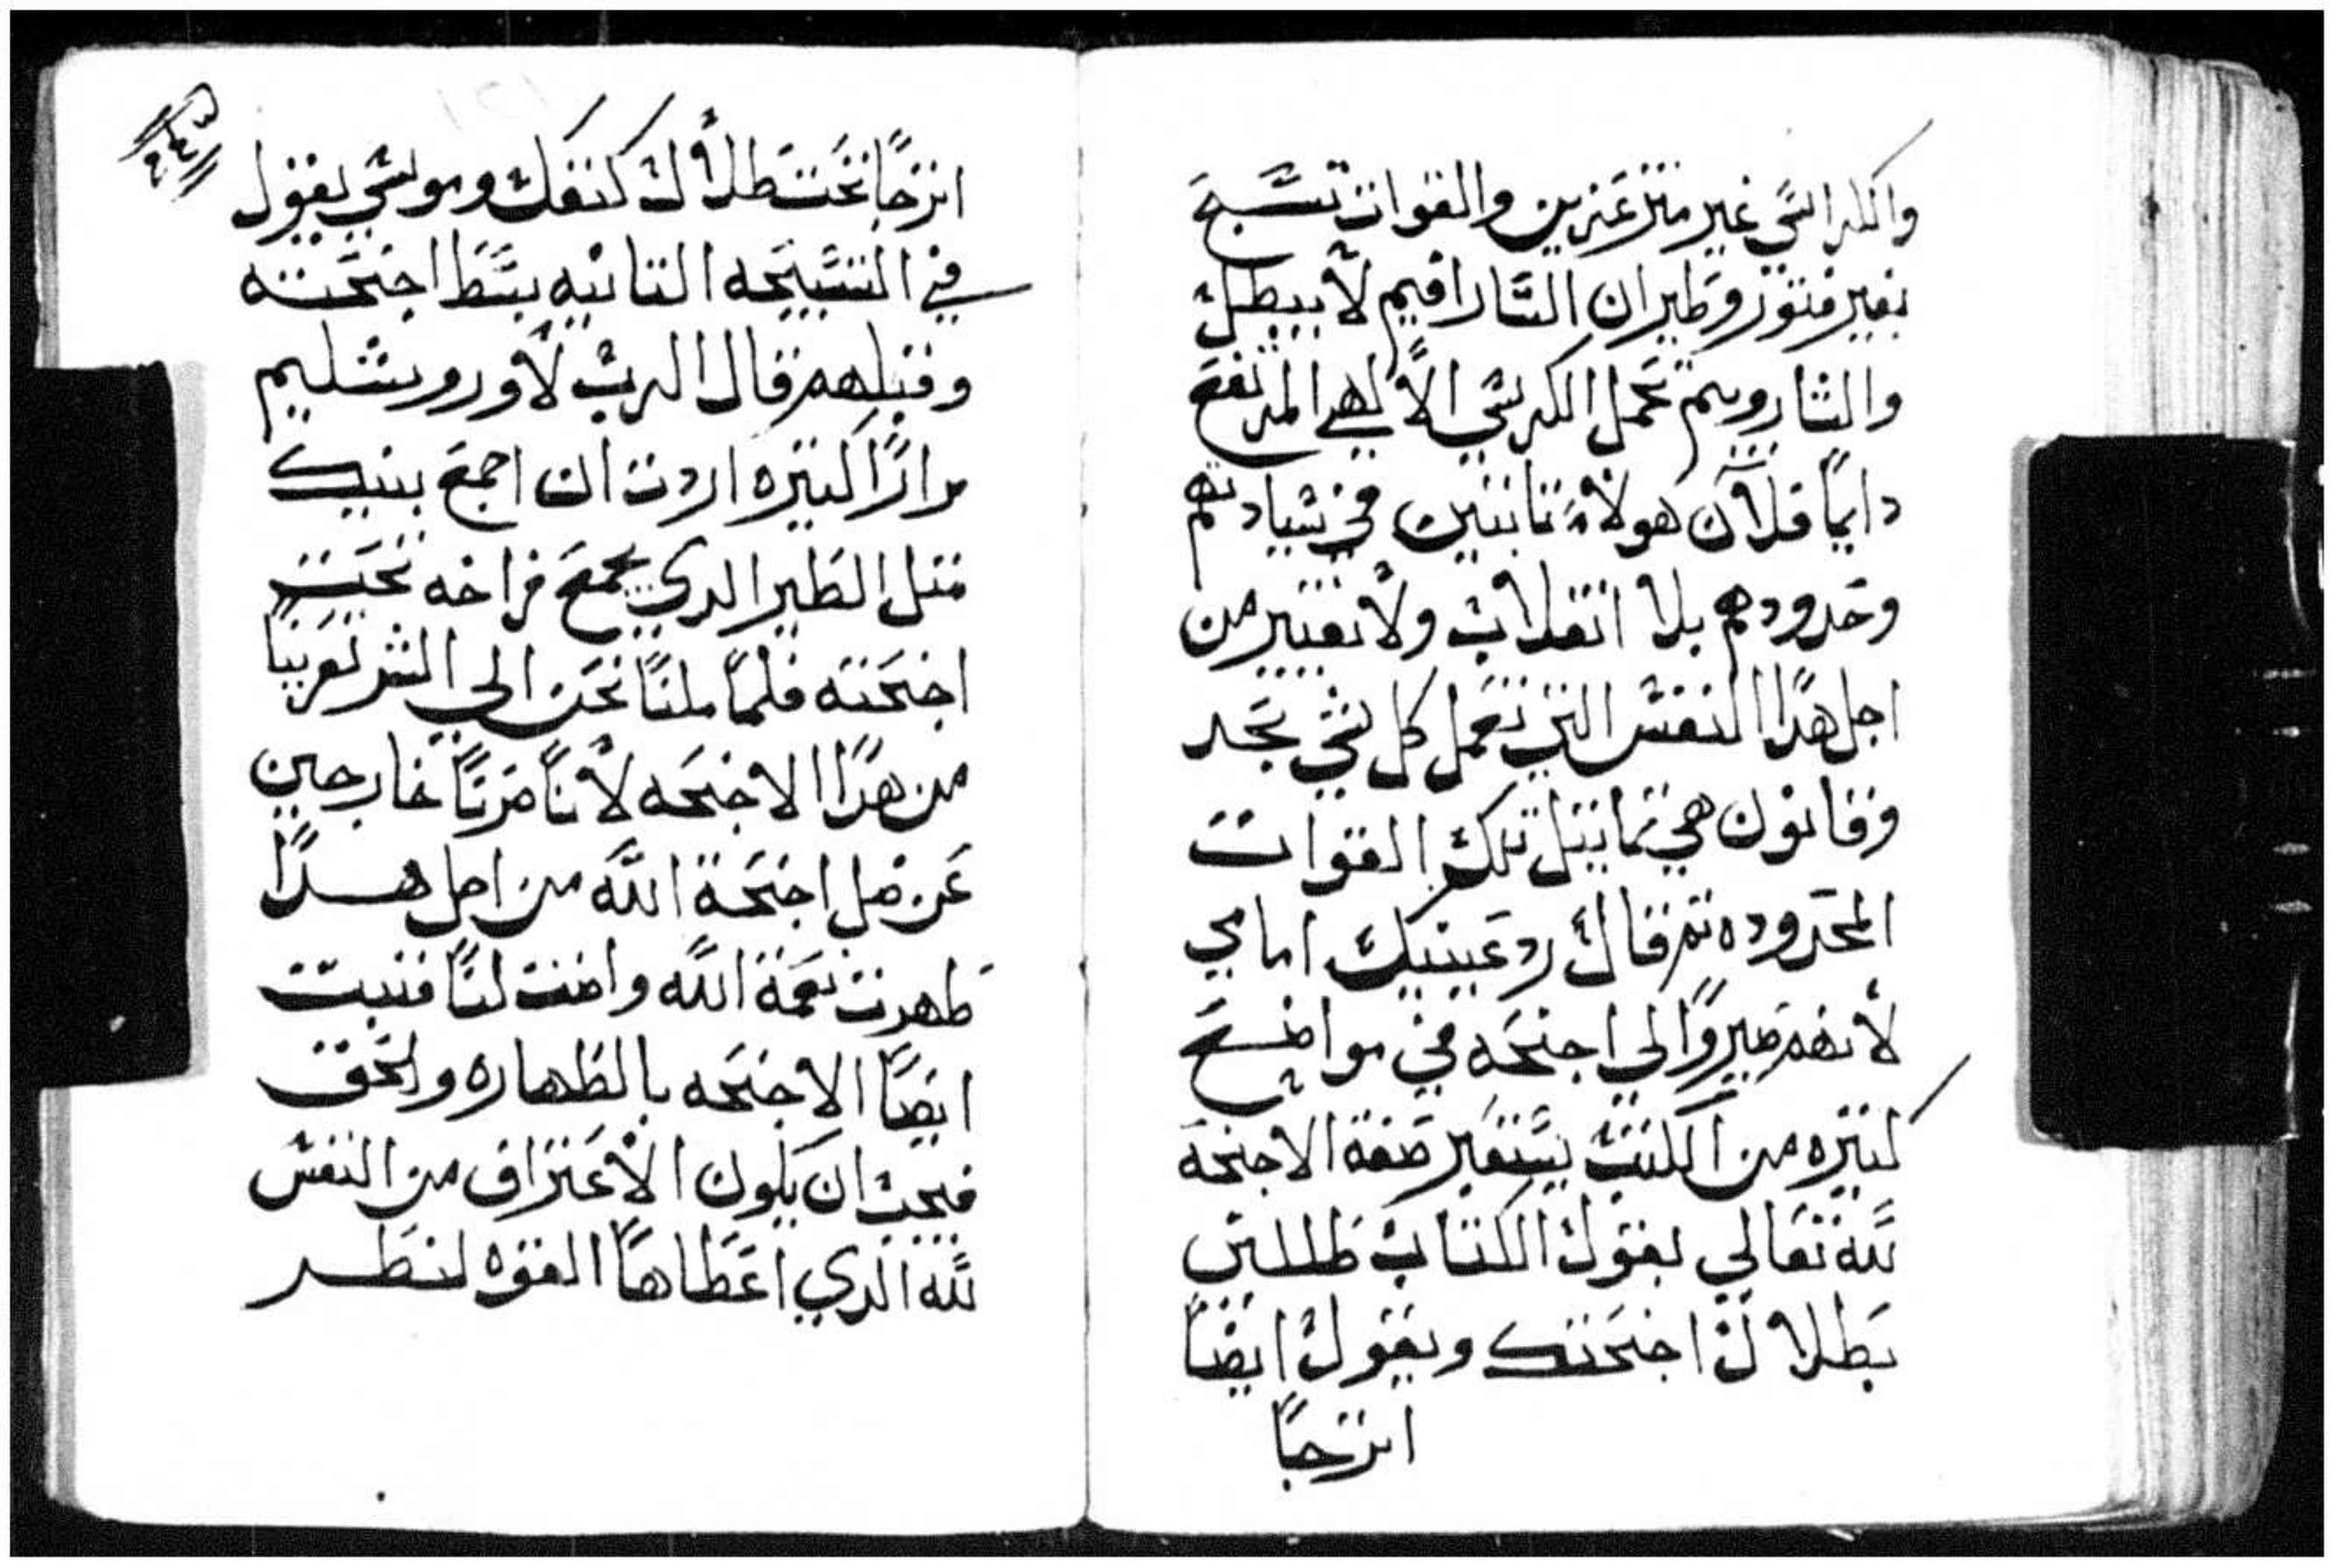 والكراسي غير متزعزين والقوات تسبح
بغير فتور وطيران السارافيم لا يبطل
والشاروبيم تحمل الكرسي الالهي المرتفع
دايمًا قلان هولاء تابتين في شيادتهم
وحدودهم بلا انقلاب ولا تغيير من
اجل هدا النفس التي تعمل كل شي بحد
وقانون هي تماتل تلك القوات
المحدوده تم قال رد عينيك امامي
لانهم صيروا لي اجنحه في مواضع
كتيره من الكتب يستعير صفة الاجنحة
لله تعالي يقول الكتاب ظللني
بظلال اجنحتك ويقول ايضًا
اترجا
٢٤٣
اترجا تحت ظلال كنفك وموسي يقول
في التسبيحه التانيه بسط اجنحته
وقبلهم قال الرب لاوروشليم
مرارًا كتيره اردت ان اجمع بنيك
متل الطير الدي يجمع فراخه تحت
اجنحته فلما ملنا نحن الي الشر تعرينا
من هدا الاجنحه لاننا صرنا خارجين
عن ضل اجنحة الله من اجل هدا
ظهرت نعمة الله واضت لنا فنبتت
ايضًا الاجنحه بالطهاره والحق
فيجب ان يكون الاعتراف من النفس
لله الذي اعطاها القوه لنظر